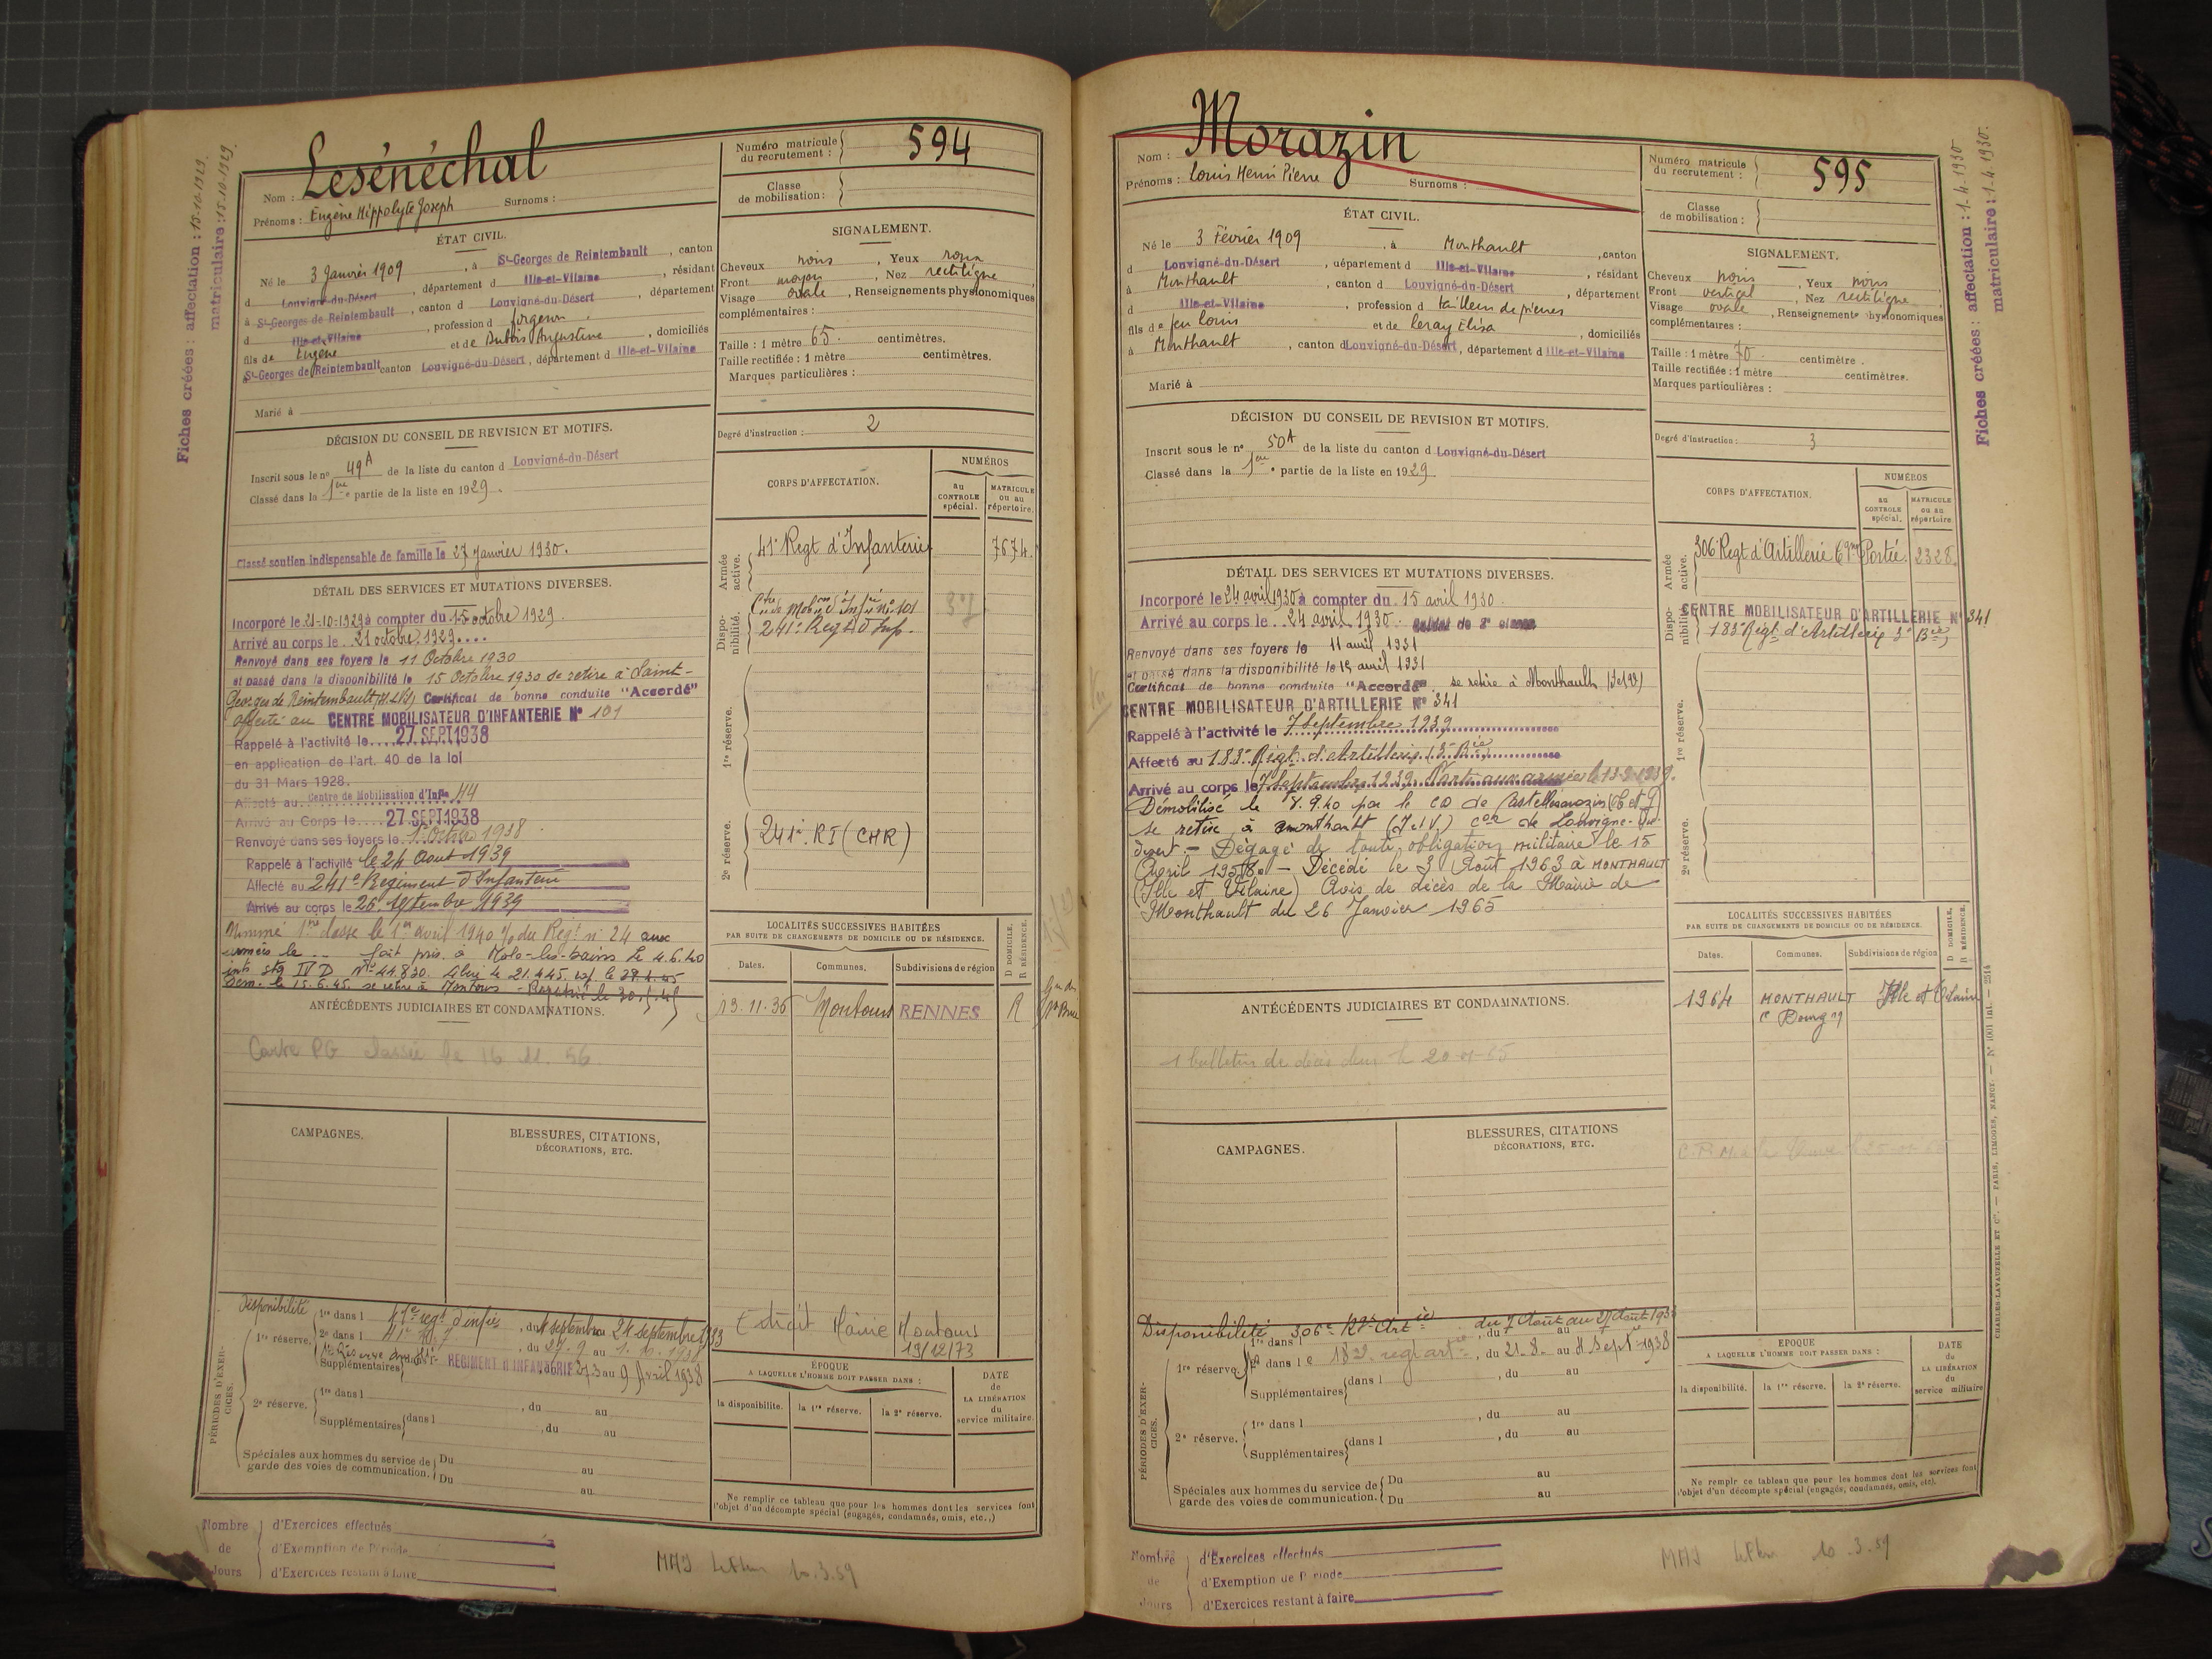 Fiches créées : affectation : 15-10-1929
matriculaire : 15.10.1929
Nom : Lesénéchal
Prénoms : Eugène Hippolyte Joseph Surnoms :
Numéro matricule du recrutement : 594
Classe de mobilisation :
ÉTAT CIVIL.
Né le 3 Janvier 1909, à St-Georges de Reintembault, canton
d Louvigné-du-Désert, département d Ille-et-Vilaine, résidant
à St-Georges de Reintembault, canton d Louvigné-du-Désert, département
d Ille-et-Vilaine, profession d forgeron,
fils de Eugène et de Dubois Augustine, domiciliés
à St-Georges de Reintembault canton Louvigné-du-Désert, département d Ille-et-Vilaine
Marié à
SIGNALEMENT.
Cheveux noirs, Yeux roux
Front moyen, Nez rectiligne,
Visage ovale, Renseignements physionomiques
complémentaires :
Taille : 1 mètre 65 centimètres.
Taille rectifiée : 1 mètre centimètres.
Marques particulières :
Degré d'instruction : 2
DÉCISION DU CONSEIL DE REVISION ET MOTIFS.
Inscrit sous le n° 49A de la liste du canton d Louvigné-du-Désert
Classé dans la 1ère partie de la liste en 1929.
Classé soutien indispensable de famille le 27 Janvier 1930.
DÉTAIL DES SERVICES ET MUTATIONS DIVERSES.
Incorporé le 21-10-1929 à compter du 15 octobre 1929.
Arrivé au corps le 21 octobre 1929
Renvoyé dans ses foyers le 11 Octobre 1930
et passé dans la disponibilité le 15 Octobre 1930 se retire à Saint-
Georges de Reintembault (I.&V) Certificat de bonne conduite "Accordé"
Affecté au CENTRE MOBILISATEUR D'INFANTERIE N° 101
Rappelé à l'activité le 27 SEPT 1938
en application de l'art. 40 de la loi
du 31 Mars 1928.
Affecté au Centre de Mobilisation d'Infie 44
Arrivé au Corps le 27 SEPT 1938
Renvoyé dans ses foyers le 1er Octobre 1938
Rappelé à l'activité le 24 Aout 1939
Affecté au 241e Régiment d'Infanterie
Arrivé au corps le 26 septembre 1939
Nommé 1ère classe le 1er avril 1940 % du Régt n° 24 aux
armées le .. fait pris. à Malo-les-bains le 4.6.40
inté stg IV D N° 44.830. Libéré le 21.4.45.
Dém. le 15.6.45. se retire à Montours - Rapatrié le
CORPS D'AFFECTATION.
NUMÉROS
au CONTROLE spécial.
MATRICULE ou au répertoire.
Armée active.
41e Regt d'Infanterie 7674.
Disponibilité.
Ctre de Mobon d'Infie n° 101
241e Regt d'Inf.
1re réserve.
2e réserve.
241e RI (CHR)
LOCALITÉS SUCCESSIVES HABITÉES
PAR SUITE DE CHANGEMENTS DE DOMICILE OU DE RÉSIDENCE.
D DOMICILE. R RÉSIDENCE.
Dates. Communes. Subdivisions de région
13.11.36 Montours RENNES R
Extrait Mairie Montours
19/12/73
ANTÉCÉDENTS JUDICIAIRES ET CONDAMNATIONS.
Carte PG classée le 16.11.56
CAMPAGNES.
BLESSURES, CITATIONS,
DÉCORATIONS, ETC.
PÉRIODES D'EXERCICES.
Disponibilité
1re réserve.
1re dans l 41e regt d'infie, du 4 septembre au 24 septembre 1933
2e dans l 41e, du 27.9 au 1.10.1938
Supplémentaires REGIMENT D'INFANTERIE au 9 Avril 1938
2e réserve.
1re dans l, du au
Supplémentaires dans l, du au
Spéciales aux hommes du service de garde des voies de communication. Du au
Du au
ÉPOQUE
A LAQUELLE L'HOMME DOIT PASSER DANS :
la disponibilité. la 1re réserve. la 2e réserve.
DATE de LA LIBÉRATION du service militaire.
Ne remplir ce tableau que pour les hommes dont les services font
l'objet d'un décompte spécial (engagés, condamnés, omis, etc.,)
Nombre de Jours
d'Exercices effectués
d'Exemption de Période
d'Exercices restant à faire
10.3.59
Fiches créées : affectation : 1-4-1930
matriculaire : 1-4-1930.
Nom : Morazin
Prénoms : Louis Henri Pierre Surnoms :
Numéro matricule du recrutement : 595
Classe de mobilisation :
ÉTAT CIVIL.
Né le 3 Février 1909, à Monthault, canton
d Louvigné-du-Désert, département d Ille-et-Vilaine, résidant
à Monthault, canton d Louvigné-du-Désert, département
d Ille-et-Vilaine, profession d tailleur de pierres
fils de feu Louis et de Leray Elisa, domiciliés
à Monthault, canton d Louvigné-du-Désert, département d Ille-et-Vilaine
Marié à
SIGNALEMENT.
Cheveux noirs, Yeux noirs
Front vertical, Nez rectiligne,
Visage ovale, Renseignements hysionomiques
complémentaires :
Taille : 1 mètre 70 centimètre.
Taille rectifiée : 1 mètre centimètres.
Marques particulières :
Degré d'instruction : 3
DÉCISION DU CONSEIL DE REVISION ET MOTIFS.
Inscrit sous le n° 50A de la liste du canton d Louvigné-du-Désert
Classé dans la 1ère partie de la liste en 1929
DÉTAIL DES SERVICES ET MUTATIONS DIVERSES.
Incorporé le 24 avril 1930 à compter du 15 avril 1930.
Arrivé au corps le 24 avril 1930. Soldat de 2e classe
Renvoyé dans ses foyers le 11 avril 1931
et passé dans la disponibilité le 15 avril 1931
Certificat de bonne conduite "Accordé" se retire à Monthault (I et V)
CENTRE MOBILISATEUR D'ARTILLERIE N° 341
Rappelé à l'activité le 7 Septembre 1939
Affecté au 183e Régt d'Artillerie (3e Bie)
Arrivé au corps le 7 Septembre 1939. Parti aux armées le 13-9-1939.
Démobilisé le 7.9.40 par le CD de Castelsarrazin (T et G)
se retire à Monthault (I et V) Con de Louvigné-du-
désert - Dégagé de toute obligation militaire le 15
Avril 1958. - Décédé le 3 Août 1963 à MONTHAULT
(Ille et Vilaine) Avis de décès de la Mairie de
Monthault du 26 Janvier 1965
CORPS D'AFFECTATION.
NUMÉROS
au CONTROLE spécial.
MATRICULE ou au répertoire
Armée active.
306e Regt d'Artillerie Portée. 2328.
Disponibilité.
CENTRE MOBILISATEUR D'ARTILLERIE N° 341
183e Régt d'Artillerie 3e Bie
1re réserve.
2e réserve.
LOCALITÉS SUCCESSIVES HABITÉES
PAR SUITE DE CHANGEMENTS DE DOMICILE OU DE RÉSIDENCE.
D DOMICILE. R RÉSIDENCE.
Dates. Communes. Subdivisions de région
1964 MONTHAULT Ille et Vilaine
"le Bourg"
ANTÉCÉDENTS JUDICIAIRES ET CONDAMNATIONS.
1 bulletin de décès
CAMPAGNES.
BLESSURES, CITATIONS
DÉCORATIONS, ETC.
PÉRIODES D'EXERCICES.
Disponibilité 306e Rgt Artie du 7 Août au 27 Août 1933
1re réserve.
1re dans l, du au
2e dans le 182e reg art, du 21-8 au 4 Sept 1938
Supplémentaires dans l, du au
2e réserve.
1re dans l, du au
Supplémentaires dans l, du au
Spéciales aux hommes du service de garde des voies de communication. Du au
Du au
EPOQUE
A LAQUELLE L'HOMME DOIT PASSER DANS :
la disponibilité. la 1re réserve. la 2e réserve.
DATE du LA LIBÉRATION du service militaire
Ne remplr ce tableau que pour les hommes dont les services font
l'objet d'un décompte spécial (engagés, condamnés, omis, etc).
CHARLES-LAVAUZELLE ET Cie. — PARIS, LIMOGES, NANCY. — N° 1001 int. — 2514
Nombre de Jours
d'Exercices effectués
d'Exemption de Période
d'Exercices restant à faire
10.3.59